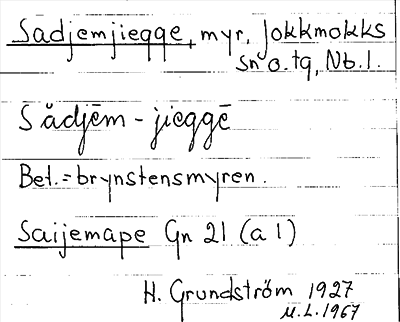 Sadjemjiegge, myr, Jokkmokks
sn o. tg, Nb. l.
Sådjēm - jieggē
Bet. = brynstensmyren.
Saijemape Gn 21 (a 1)
H. Grundström 1927
M.L. 1967